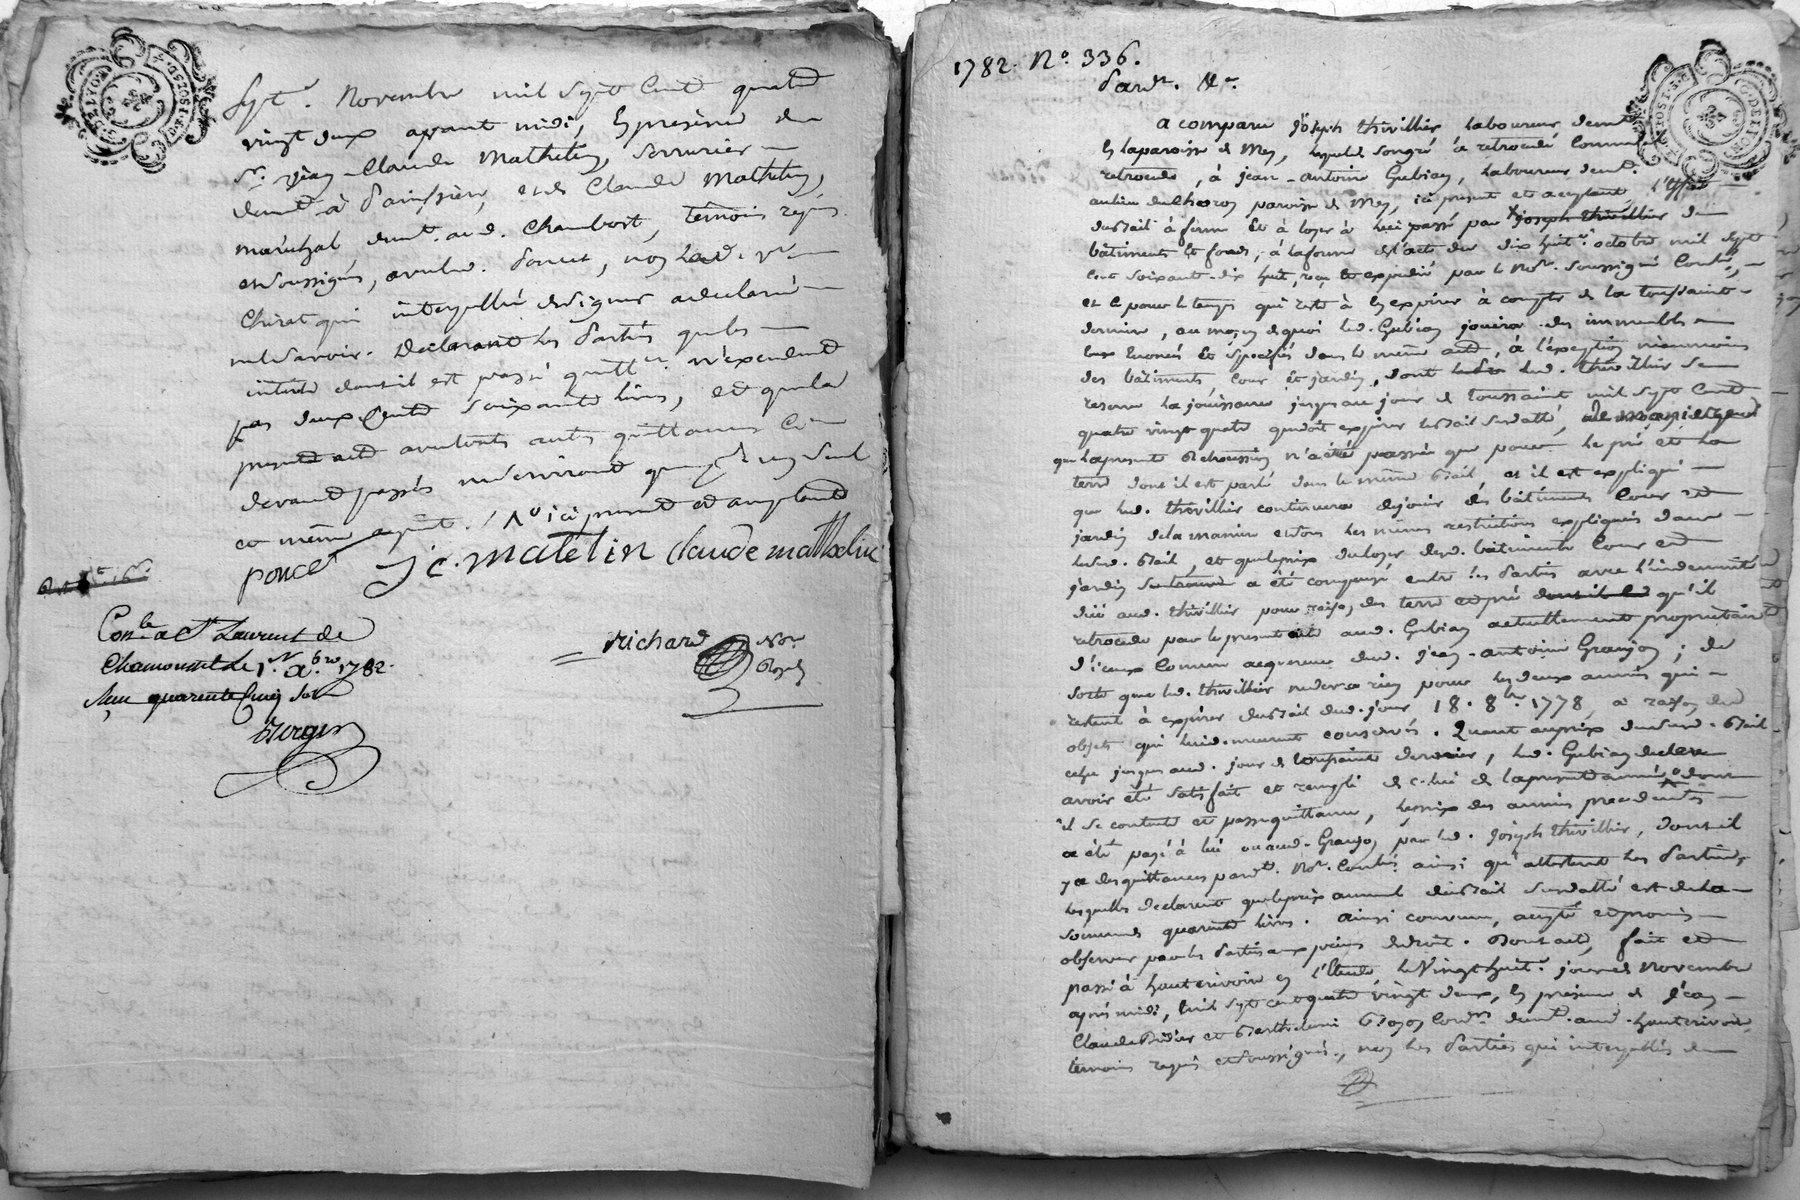 Sept.e Novembre mil Sept Cent quatre
vingt deux avant midi, En présence de
Sr. Jean-Claude Mathelin, Serrurier
demt. à Panissière, et de Claude Mathelin,
maréchal demt. aud. Chambost, témoins requis
et soussignés, avec led. Poncet, non lad. ve
Chirat qui interpellée de signer a déclaré
ne le savoir. Déclarant les Parties que les
interets dont il est passé quitt.ce n'excedent
pas deux Cents Soixante livres, et que la
présente et autres quittances
devant passés ne serviront que d'un seul
et même acquit. ici present et acceptant
poncet J C. matelin claude mathelin
Con.le a St Laurent de
Chamousset le 1.er Xbre 1782.
Reçu quarente Cinq Sols
richard Nore
Royal
1782. No. 336.
Pardt. Nre.
a comparu Joseph thivillier Laboureur demt.
En la paroisse de Mey, lequel de son gré a retrocédé Comme
retrocede, à jean-antoine Gubian, Laboureur demt.
au lieu du paroisse de Mey, ici présent et acceptant, l'Effet
du Bail à ferme Et à loyer à lui passé par joseph thivillier de
bâtiments Et fonds, à la forme de l'acte du dix huit octobre mil Sept
Cent Soixante-dix huit, reçu Et expédié par le Nore. soussigné Contlé,
et ce pour le temps qui reste à En expirer à compter de la toussaint
derniere, au moyen de quoi led. Gubian jouira des immeubles
Enoncés Et spécifiés dans le même acte, à l'exception néanmoins
des bâtiments, Cour Et jardin, dont led. thivillier se
reserve la jouissance jusques au jour de toussaint mil Sept Cent
quatre vingt quatre que doit expirer le Bail susdatté, de maniere que
que la presente Retrocession n'a été passée que pour le pré et la
terre dont il est parlé dans le même Bail, et il est expliqué
que led. thivillier continuera de jouir des bâtiments Cour et
jardin de la maniere et sous les mêmes restrictions expliquées dans
led. Bail, et que le prix du loyer desd. bâtiments Cour et
jardin a été compensé entre les Parties avec l'indemnité
due aud. thivillier pour raison des terre et pré dont il est qu'il
retrocede par le present acte aud. Gubian actuellement propriétaire
d'iceux Comme acquereur dud. jean-antoine Granjon; de
sorte que led. thivillier ne devra rien pour les deux années qui
restent à expirer du Bail dud. jour 18. 8bre 1778, a raison des
objets qui lui demeurent conservés. Quant au prix dud. Bail
celui jusques aud. jour de toussaint dernier, led. Gubian déclare
avoir été satisfait et rempli de celui de la presente année dont
il se contente et passe quittance, le prix des années précédentes
a été payé à lui ou aud. Granjon par led. Joseph thivillier, dont il
y a des quittances pardt. Nore. Contlé. ainsi qu'attestent les Parties,
lesquelles declarent que le prix annuel du Bail susdatté est de la
somme de quarente livres. ainsi convenu, accepté et promis
observer par les Parties aux peines de droit. Dont acte, fait et
passé à hauterivoire en l'étude le Vingt huit jour de Novembre
après midi, mil Sept cent quatre vingt deux, En présence de Jean
Claude Didier et Barthelemi demt. aud. hauterivoire,
témoins requis et soussignés, non les Parties qui interpellées de